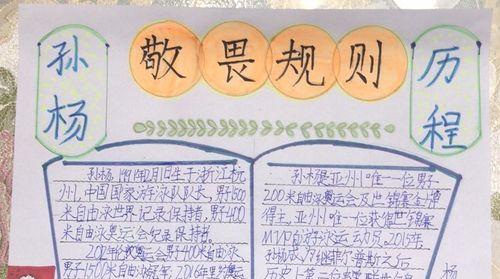 孙杨
敬畏规则
历程
孙杨,1991年12月1日生于浙江杭
州,中国国家游泳队队长,男子1500
米自由泳世界记录保持者,男子400
米自由泳奥运会纪录保持者。
2012年伦敦奥运会男子400米自由泳、
男子1500米自由泳冠军;2016年里
孙杨是亚州唯一一位男子
200米自由泳奥运会及世锦赛金牌
得主,亚州唯一一位获得世锦赛
MVP的游泳运动员。2015年
孙杨成为继菲尔普斯之后
历史上第二位